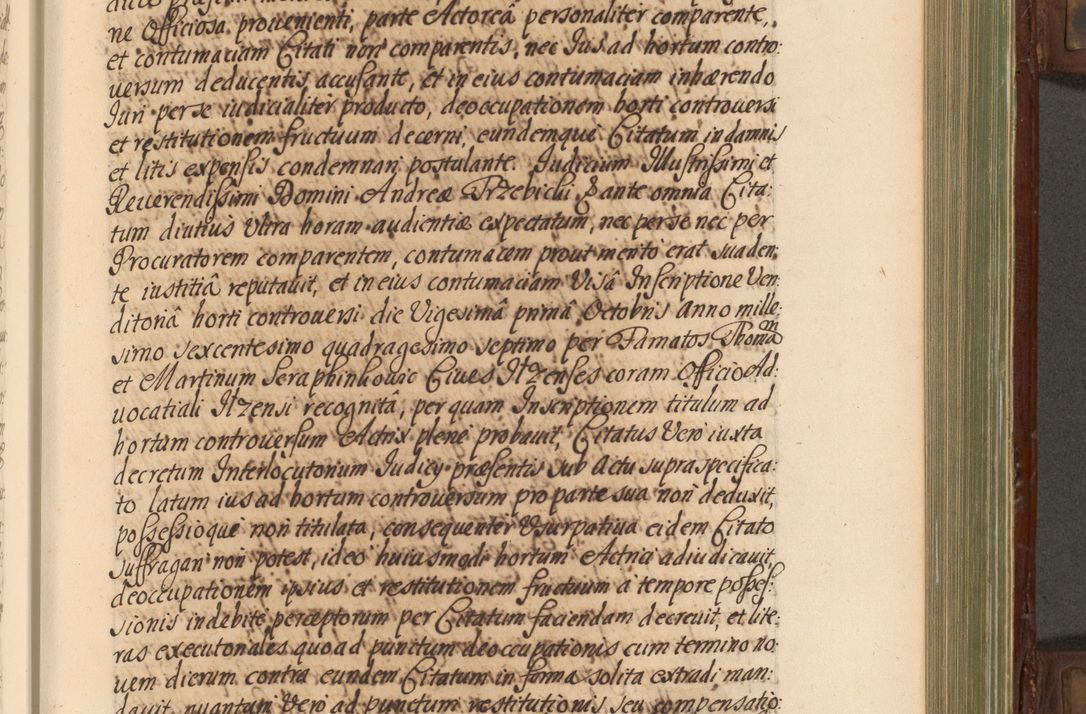 ne Officiosa provenienti, parte Actoreâ personaliter comparente,
et contumaciam Citati non comparentis, nec Ius ad hortum contro:
versum deducentis accusante, et in eius contumaciam inhærendo
Iuri per se iudicialiter producto, deoccupationem horti controversi
et restitutionem fructuum decerni, eundemque Citatum in damnis
et litis expensis condemnari postulante. Iudicium Illustrissimi et
Reverendissimi Domini Andreæ Trzebicki & ante omnia Cita:
tum diutius Ultra horam audientiæ expectatum, nec per se nec per
Procuratorem comparentem, contumacem prout merito erat suaden:
te iustitiâ reputavit, et in eius contumaciam Visâ Inscriptione Ven
ditoriâ horti controversi die Vigesimâ primâ Octobris Anno mille:
simo sexcentesimo quadragesimo septimo per Famatos Thomam
et Martinum Seraphinkowic Cives Ilzenses coram Officio Ad:
vocatiali Ilzensi recognitâ, per quam Inscriptionem titulum ad
hortum controversum Actrix plene probavit, Citatus Vero iuxta
decretum Interlocutorium Iudicy præsentis sub Actu supra specifica:
to latum ius ad hortum controversum pro parte sua non deduxit,
possessioque non titulata, consequenter Usurpativa eidem Citato
suffragari non potest, ideo huiusmodi hortum Actrici adiudicavit,
deoccupationem ipsius et restitutionem fructuum a tempore posses:
sionis indebite perceptorum per Citatum faciendam decrevit, et lite:
ras executoriales quoad punctum deoccupationis cum termino no:
vem dierum contra eundem Citatum in forma solita extradi man:
davit, quantum Vero ad punctum restitutionis seu compensatio: